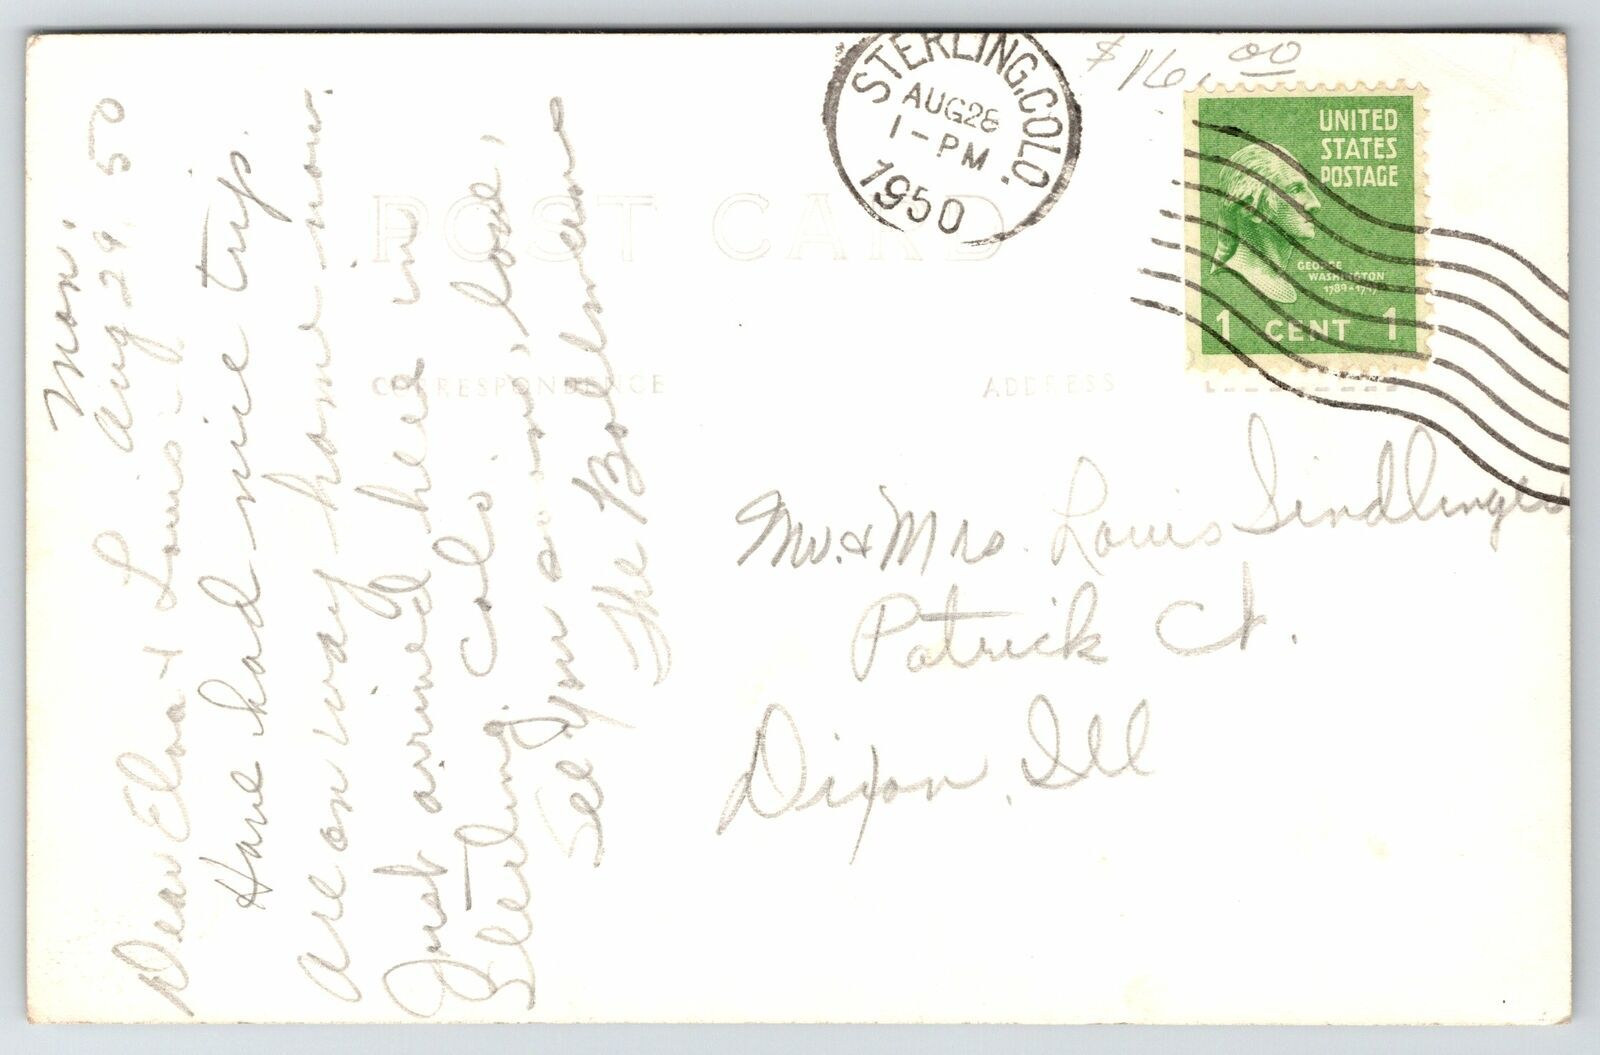 Mon.
Aug 29. 50
Dear Elna & Louis:-
Have had nice trip.
are on way home now.
Just arrived here in
Sterling Colo.
See you soon, love,
The Bohlmeans
POST CARD
CORRESPONDENCE
ADDRESS
STERLING, COLO.
AUG 28
1-PM
1950
$16.00
UNITED
STATES
POSTAGE
GEORGE
WASHINGTON
1789-1797
1 CENT 1
Mr. & Mrs. Louis Sindlinger
Patrick Ct.
Dixon, Ill